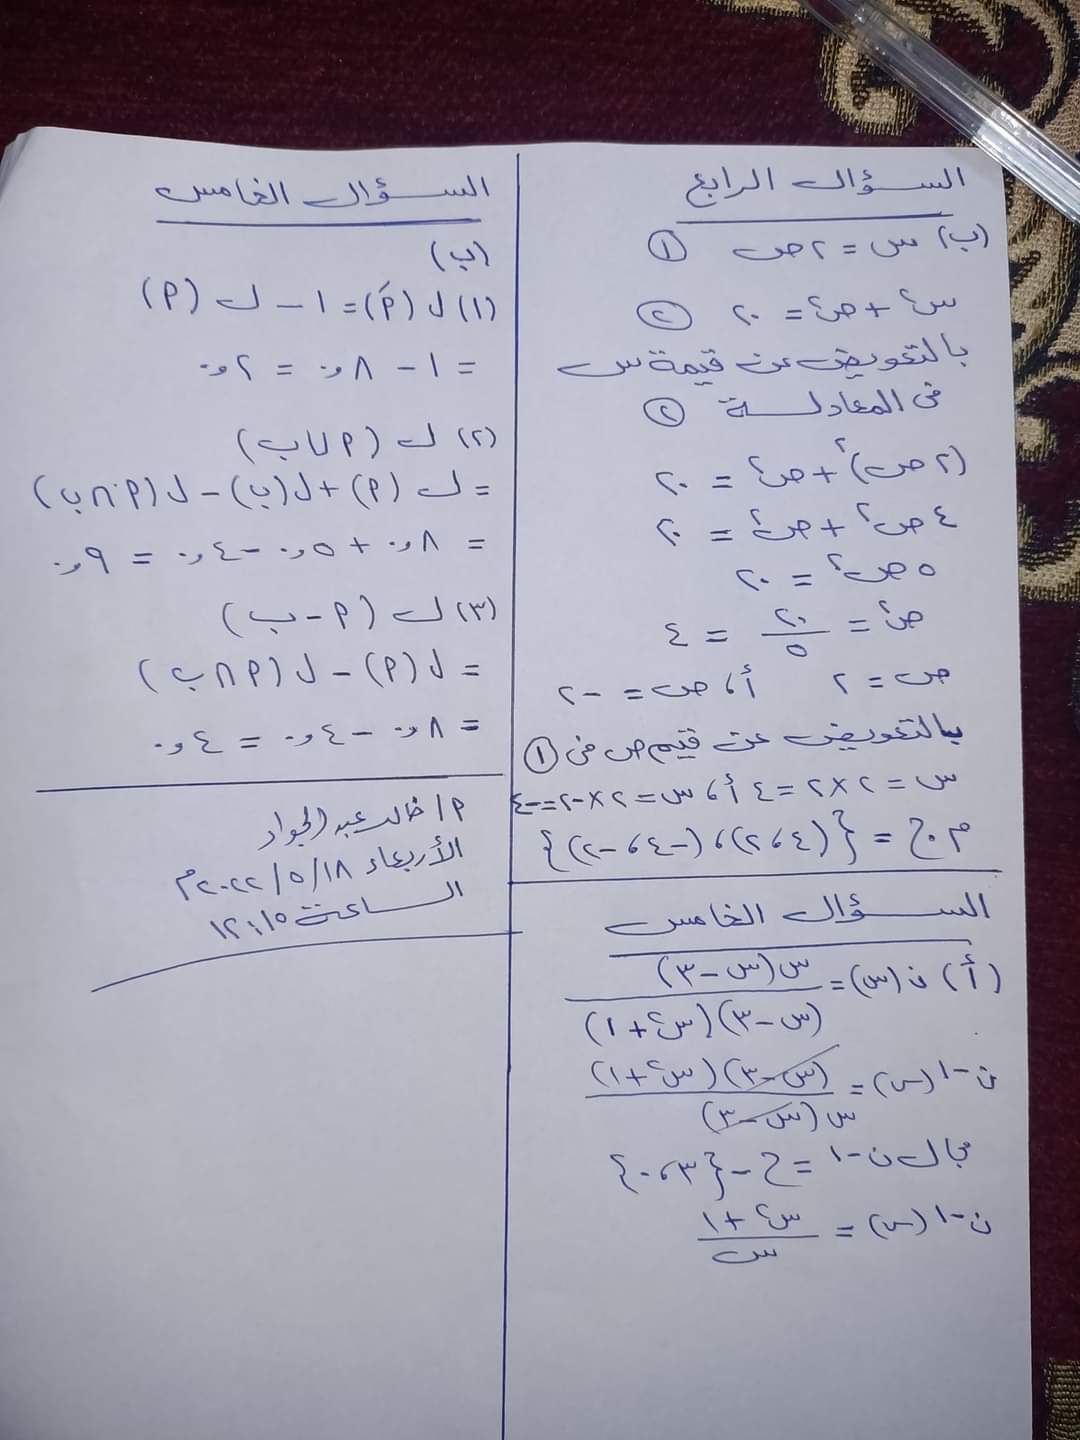 السؤال الرابع
(ب) س = ٢ص ①
س² + ص² = ٢٠ ②
بالتعويض عن قيمة س
فى المعادلة ②
(٢ص)² + ص² = ٢٠
٤ص² + ص² = ٢٠
٥ص² = ٢٠
ص² = ٢٠/٥ = ٤
ص = ٢ أ، ص = -٢
بالتعويض عن قيم ص فى ①
س = ٢×٢ = ٤ أ، س = ٢×-٢ = -٤
م.ح = {(٤، ٢)، (-٤، -٢)}
السؤال الخامس
(أ) ن(س) = س(س-٣)/(س-٣)(س²+١)
ن⁻¹(س) = (س-٣)(س²+١)/س(س-٣)
مجال ن⁻¹ = ح - {٣، ٠}
ن⁻¹(س) = س²+١/س
السؤال الخامس
(ب)
(١) ل(أَ) = ١ - ل(أ)
= ١ - ٨و٠ = ٢و٠
(٢) ل(أ∪ب)
= ل(أ) + ل(ب) - ل(أ∩ب)
= ٨و٠ + ٥و٠ - ٤و٠ = ٩و٠
(٣) ل(أ-ب)
= ل(أ) - ل(أ∩ب)
= ٨و٠ - ٤و٠ = ٤و٠
م/ خالد عبد الجواد
الأربعاء ١٨/٥/٢٠٢٢م
الساعة ١٢:١٥